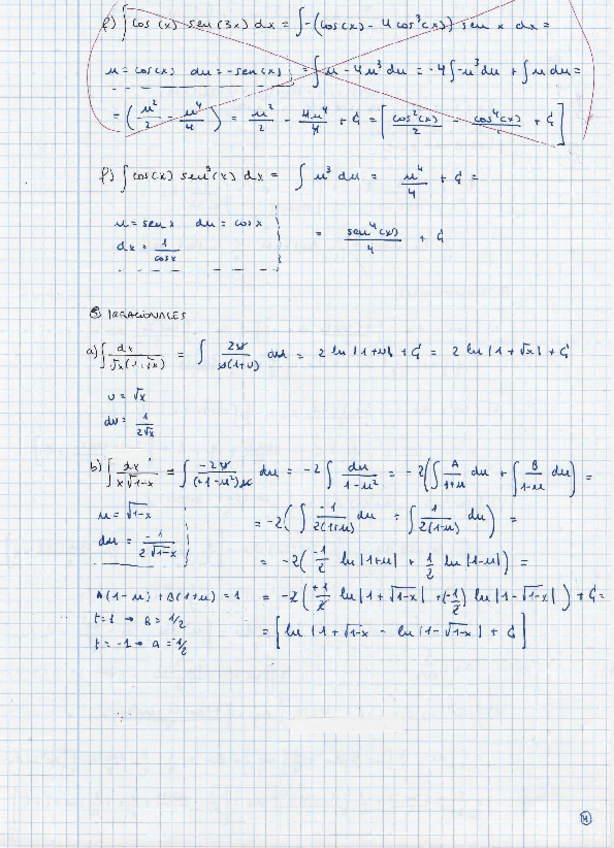 f) ∫ cos(x) sen(3x) dx = ∫ -(cos(x) - 4cos³(x)) sen x dx =
u = cos(x) du = -sen(x) = ∫ u - 4u³ du = -4∫ -u³ du + ∫ u du =
= (u²/2 - u⁴/4) = u²/2 - 4u⁴/4 + C = [cos²(x)/2 - cos⁴(x)/4 + C]
f) ∫ cos(x) sen³(x) dx = ∫ u³ du = u⁴/4 + C =
u = sen x du = cos x
dx = 1/cos x
= sen⁴(x)/4 + C
IRRACIONALES
a) ∫ dx/(√x(1+√x)) = ∫ 2u/(u(1+u)) du = 2 ln|1+u| + C = 2 ln|1+√x| + C
u = √x
du = 1/(2√x)
b) ∫ dx/(x√1-x) = ∫ -2u/((+1-u²)u) du = -2 ∫ du/(1-u²) = -2(∫ A/(1+u) du + ∫ B/(1-u) du) =
u = √1-x
= -2(∫ -1/(2(1+u)) du + ∫ 1/(2(1-u)) du) =
du = -1/(2√1-x)
= -2(-1/2 ln|1+u| + 1/2 ln|1-u|) =
A(1-u) + B(1+u) = 1 = -2(+1/2 ln|1+√1-x| +(-1/2) ln|1-√1-x|) + C =
t=1 → B = 1/2
= [ln|1+√1-x - ln|1-√1-x| + C]
t=-1 → A = -1/2
4